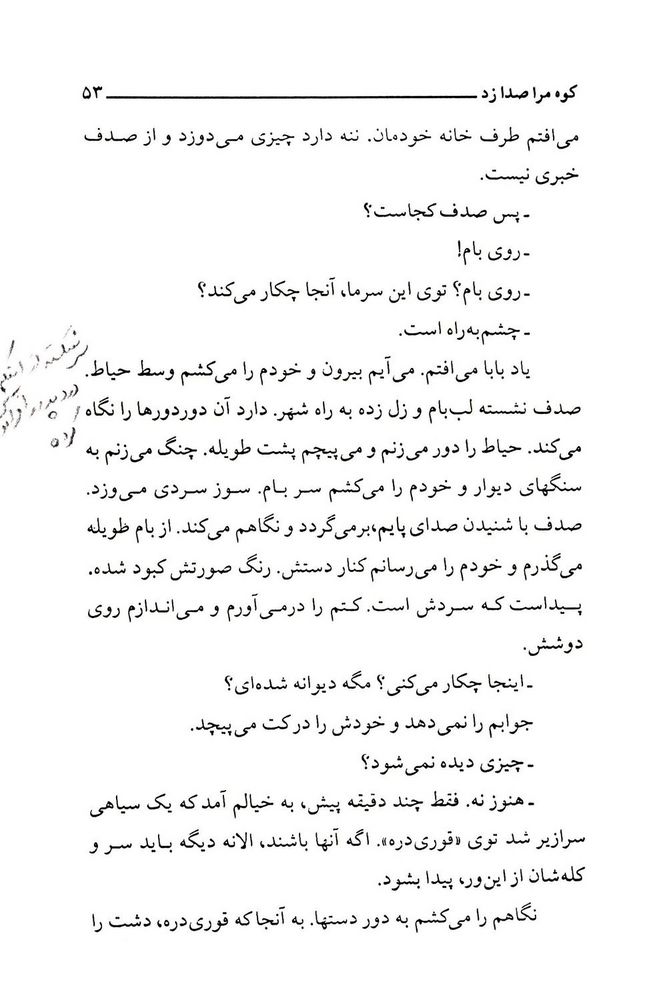 کوه مرا صدا زد ۵۳
می‌افتم طرف خانه خودمان. ننه دارد چیزی می‌دوزد و از صدف
خبری نیست.
ـ پس صدف کجاست؟
ـ روی بام!
ـ روی بام؟ توی این سرما، آنجا چکار می‌کند؟
ـ چشم‌به‌راه است.
یاد بابا می‌افتم. می‌آیم بیرون و خودم را می‌کشم وسط حیاط.
صدف نشسته لب‌بام و زل زده به راه شهر. دارد آن دوردورها را نگاه
می‌کند. حیاط را دور می‌زنم و می‌پیچم پشت طویله. چنگ می‌زنم به
سنگهای دیوار و خودم را می‌کشم سر بام. سوز سردی می‌وزد.
صدف با شنیدن صدای پایم،برمی‌گردد و نگاهم می‌کند. از بام طویله
می‌گذرم و خودم را می‌رسانم کنار دستش. رنگ صورتش کبود شده.
پیداست که سردش است. کتم را درمی‌آورم و می‌اندازم روی
دوشش.
ـ اینجا چکار می‌کنی؟ مگه دیوانه شده‌ای؟
جوابم را نمی‌دهد و خودش را در کت می‌پیچد.
ـ چیزی دیده نمی‌شود؟
ـ هنوز نه. فقط چند دقیقه پیش، به خیالم آمد که یک سیاهی
سرازیر شد توی «قوری‌دره». اگه آنها باشند، الانه دیگه باید سر و
کله‌شان از این‌ور، پیدا بشود.
نگاهم را می‌کشم به دور دستها. به آنجا که قوری‌دره، دشت را